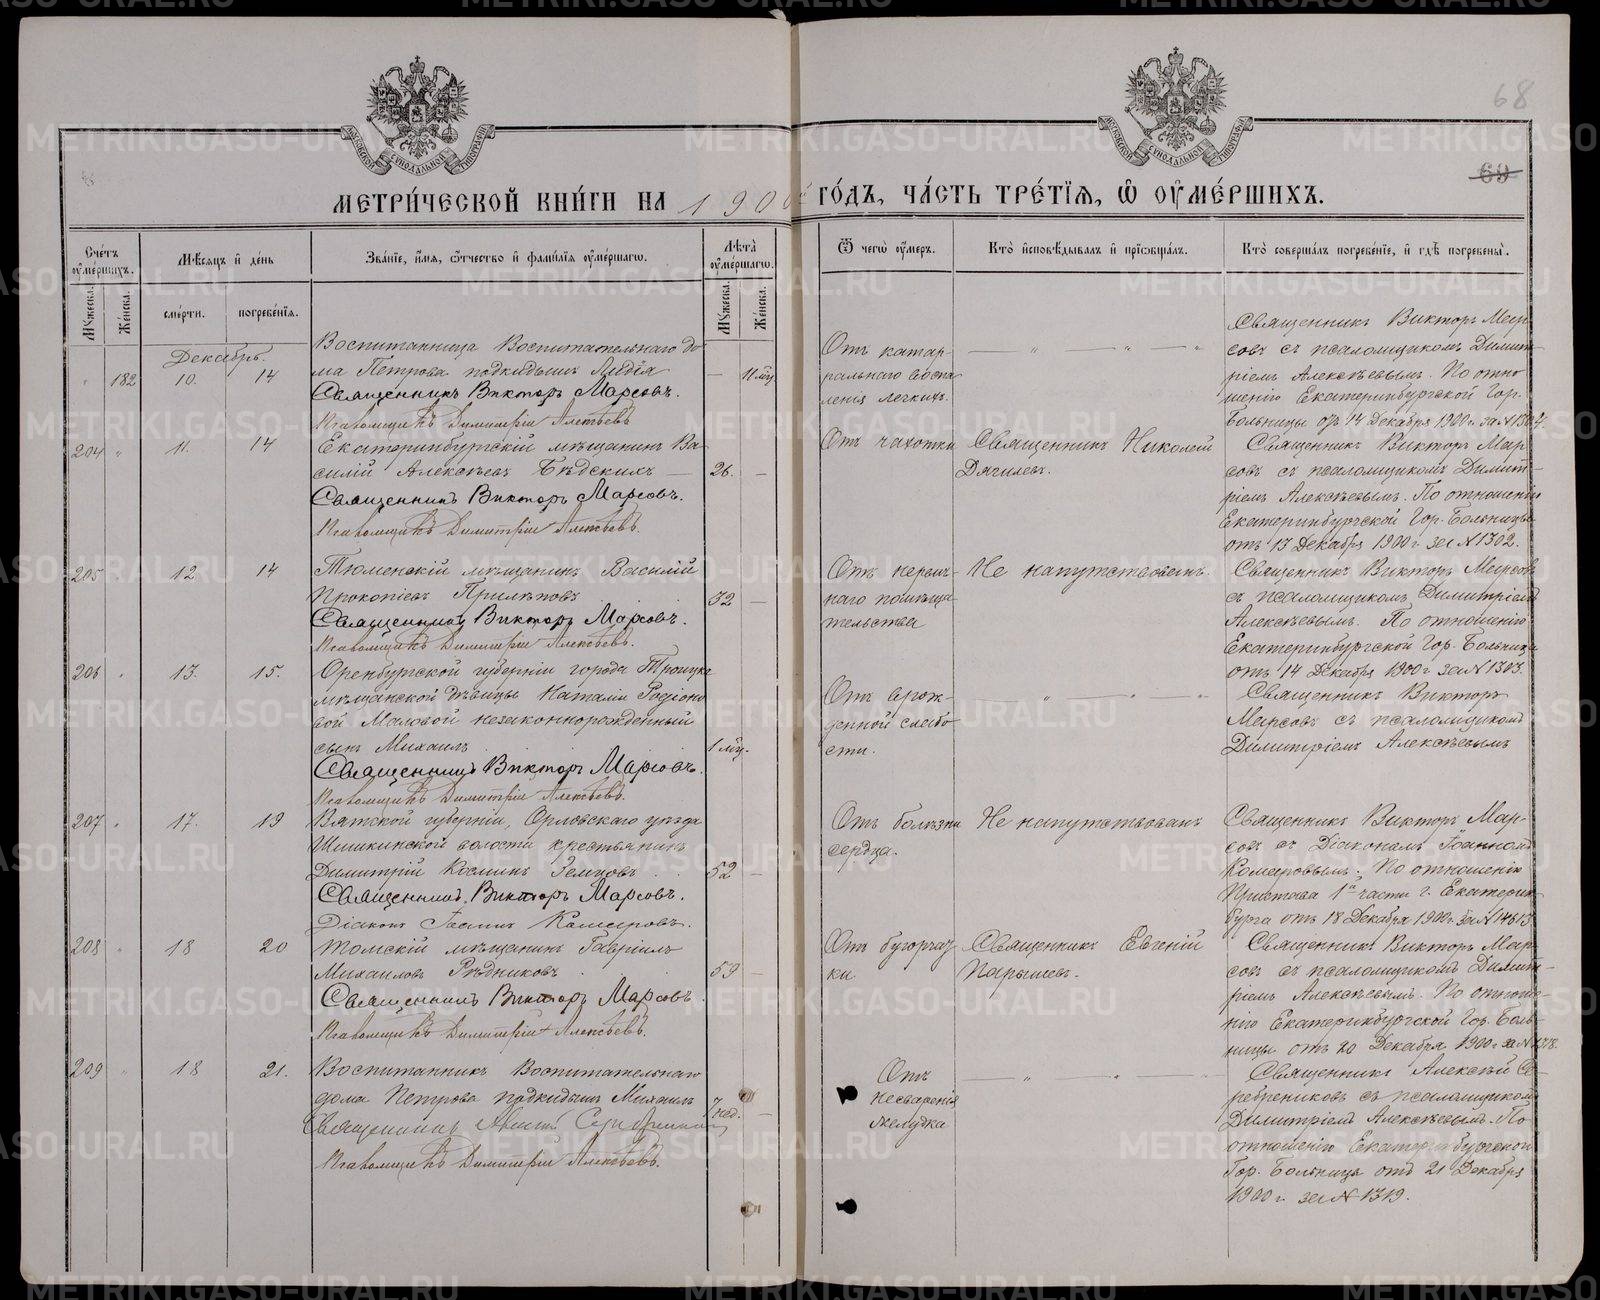 68
69
МОСКОВСКОЙ СѴНОДАЛЬНОЙ ТИПОГРАФІИ
МОСКОВСКОЙ СѴНОДАЛЬНОЙ ТИПОГРАФІИ
МЕТРИ́ЧЕСКОЙ КНИ́ГИ НА 1900й ГО́ДЪ, ЧА́СТЬ ТРЕ́ТІѦ, Ѽ ОУМЕ́РШИХЪ.
Сче́тъ оумершихъ.
Мѣсяцъ и день
Зва́ніе, имѧ, ѻтчество и фамиліѧ оумершагѡ.
Лѣта оумершагѡ.
Ѿ чегѡ оумеръ.
Кто исповѣдывалъ и пріѡбщалъ.
Кто совершалъ погребеніе, и гдѣ погребены.
Мужеска.
Женска.
смерти.
погребеніѧ.
Мужеска.
Женска.
Декабрь.
" 182 10. 14
Воспитанница Воспитательнаго до
ма Петрова подкидышъ Лидія
Священникъ Викторъ Марсовъ.
Псаломщикъ Димитрій Алексѣевъ
— 11 мц.
Отъ катар-
ральнаго воспа
ленія легкихъ.
— " — " — "
Священникъ Викторъ Мар-
совъ съ псаломщикомъ Димит-
ріемъ Алексѣевымъ. По отно
шенію Екатеринбургской Гор.
Больницы отъ 14 Декабря 1900 г. за № 1304.
204 " 11. 14
Екатеринбургскій мѣщанинъ Ва-
силій Алексѣевъ Бѣдскихъ —
Священникъ Викторъ Марсовъ.
Псаломщикъ Димитрій Алексѣевъ.
26. —
Отъ чахотки
Священникъ Николай
Дягилевъ.
Священникъ Викторъ Мар-
совъ съ псаломщикомъ Димит-
ріемъ Алексѣевымъ. По отношенію
Екатеринбургской Гор. Больницы
отъ 13 Декабря 1900 г за № 1302.
205 " 12 14
Тюменскій мѣщанинъ Василій
Прокопіевъ Прилѣповъ
Священникъ Викторъ Марсовъ.
Псаломщикъ Димитрій Алексѣевъ.
32 —
Отъ нервн-
наго помѣша
тельства
Не напутствованъ.
Священникъ Викторъ Марсовъ
съ псаломщикомъ Димитріемъ
Алексѣевымъ. По отношенію
Екатеринбургской Гор. Больницы
отъ 14 Декабря 1900 г за № 1303.
206 " 13. 15.
Оренбургской губерніи города Троицка
мѣщанской дѣвицы Наталіи Родіоно
вой Маловой незаконнорожденный
сынъ Михаилъ
Священникъ Викторъ Марсовъ.
Псаломщикъ Димитрій Алексѣевъ.
1 мц.
Отъ врож-
денной слабо
сти.
— " — " — "
Священникъ Викторъ
Марсовъ съ псаломщикомъ
Димитріемъ Алексѣевымъ
207 " 17. 19
Вятской губерніи, Орловскаго уѣзда
Шишкинской волости крестьянинъ
Димитрій Косминъ Земцовъ
Священникъ Викторъ Марсовъ.
Діаконъ Іоаннъ Комаровъ.
52 —
Отъ болѣзни
сердца.
Не напутствованъ
Священникъ Викторъ Мар-
совъ съ Діакономъ Іоанномъ
Комаровымъ. По отношенію
Пристава 1й части г. Екатерин
бурга отъ 18 Декабря 1900 г. за № 14613
208 " 18 20
Томскій мѣщанинъ Гавріилъ
Михаиловъ Рѣдниковъ
Священникъ Викторъ Марсовъ.
Псаломщикъ Димитрій Алексѣевъ.
59 —
Отъ бугорчат
ки.
Священникъ Евгеній
Парышевъ.
Священникъ Викторъ Мар
совъ съ псаломщикомъ Димит-
ріемъ Алексѣевымъ. По отноше-
нію Екатеринбургской Гор. Боль
ницы отъ 20 Декабря 1900 г за № 1318.
209 " 18 21.
Воспитанникъ Воспитательнаго
дома Петрова подкидышъ Михаилъ
Священникъ Алексѣй Серебренниковъ
Псаломщикъ Димитрій Алексѣевъ.
7 нед. —
Отъ
несваренія
желудка
— " — " — "
Священникъ Алексѣй Се-
ребрениковъ съ псаломщикомъ
Димитріемъ Алексѣевымъ. По
отношенію Екатеринбургской
Гор. Больницы отъ 21 Декабря
1900 г. за № 1319.
METRIKI.GASO-URAL.RU